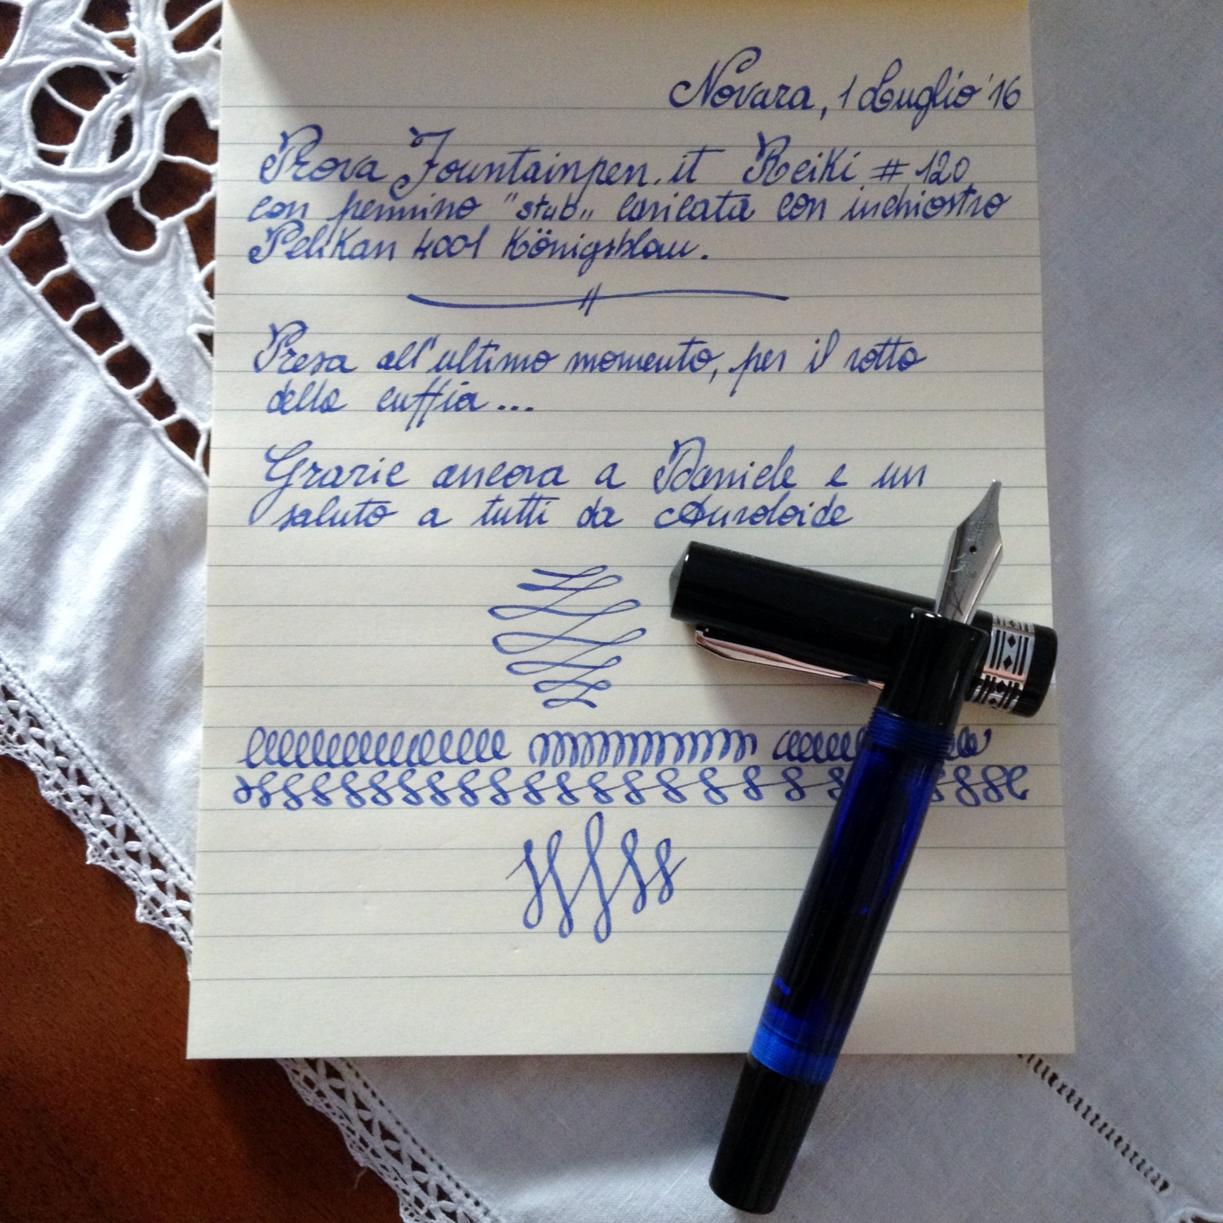 Novara, 1 Luglio '16
Prova Fountainpen.it Reiki # 120
con pennino "stub" caricata con inchiostro
Pelikan 4001 Königsblau.
Presa all'ultimo momento, per il rotto
della cuffia...
Grazie ancora a Daniele e un
saluto a tutti da